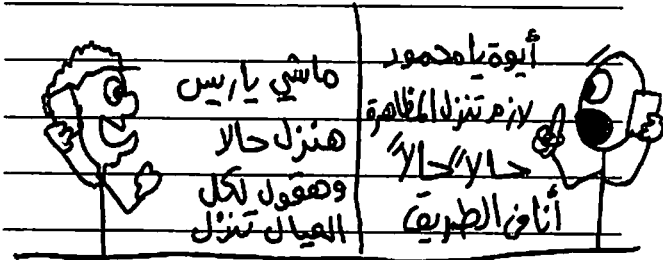 أيوة يا محمود
لازم تنزل المظاهرة
حالاً حالاً
أنا في الطريق
ماشي ياريس
هنزل حالا
وهقول لكل
العيال تنزل